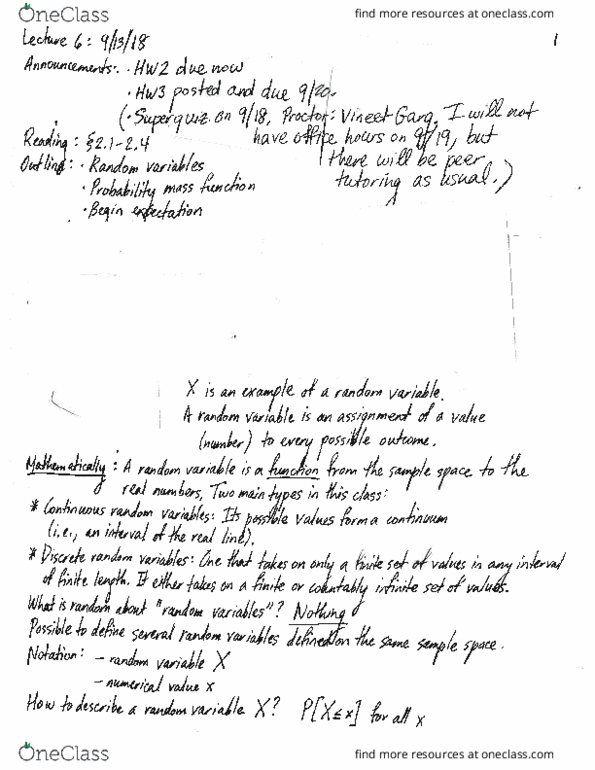 OneClass
find more resources at oneclass.com
Lecture 6: 9/13/18
1
Announcements: · HW2 due now
· HW3 posted and due 9/20.
(· Superquiz on 9/18, Proctor: Vineet Garg, I will not
have office hours on 9/19, but
there will be peer
tutoring as usual.)
Reading: §2.1-2.4
Outline: · Random variables
· Probability mass function
· Begin expectation
X is an example of a random variable.
A random variable is an assignment of a value
(number) to every possible outcome.
Mathematically: A random variable is a function from the sample space to the
real numbers. Two main types in this class:
* Continuous random variables: Its possible values form a continuum
(i.e., an interval of the real line).
* Discrete random variables: One that takes on only a finite set of values in any interval
of finite length. It either takes on a finite or countably infinite set of values.
What is random about "random variables"? Nothing
Possible to define several random variables defined on the same sample space.
Notation: - random variable X
- numerical value x
How to describe a random variable X? P[X≤x] for all x
OneClass
find more resources at oneclass.com